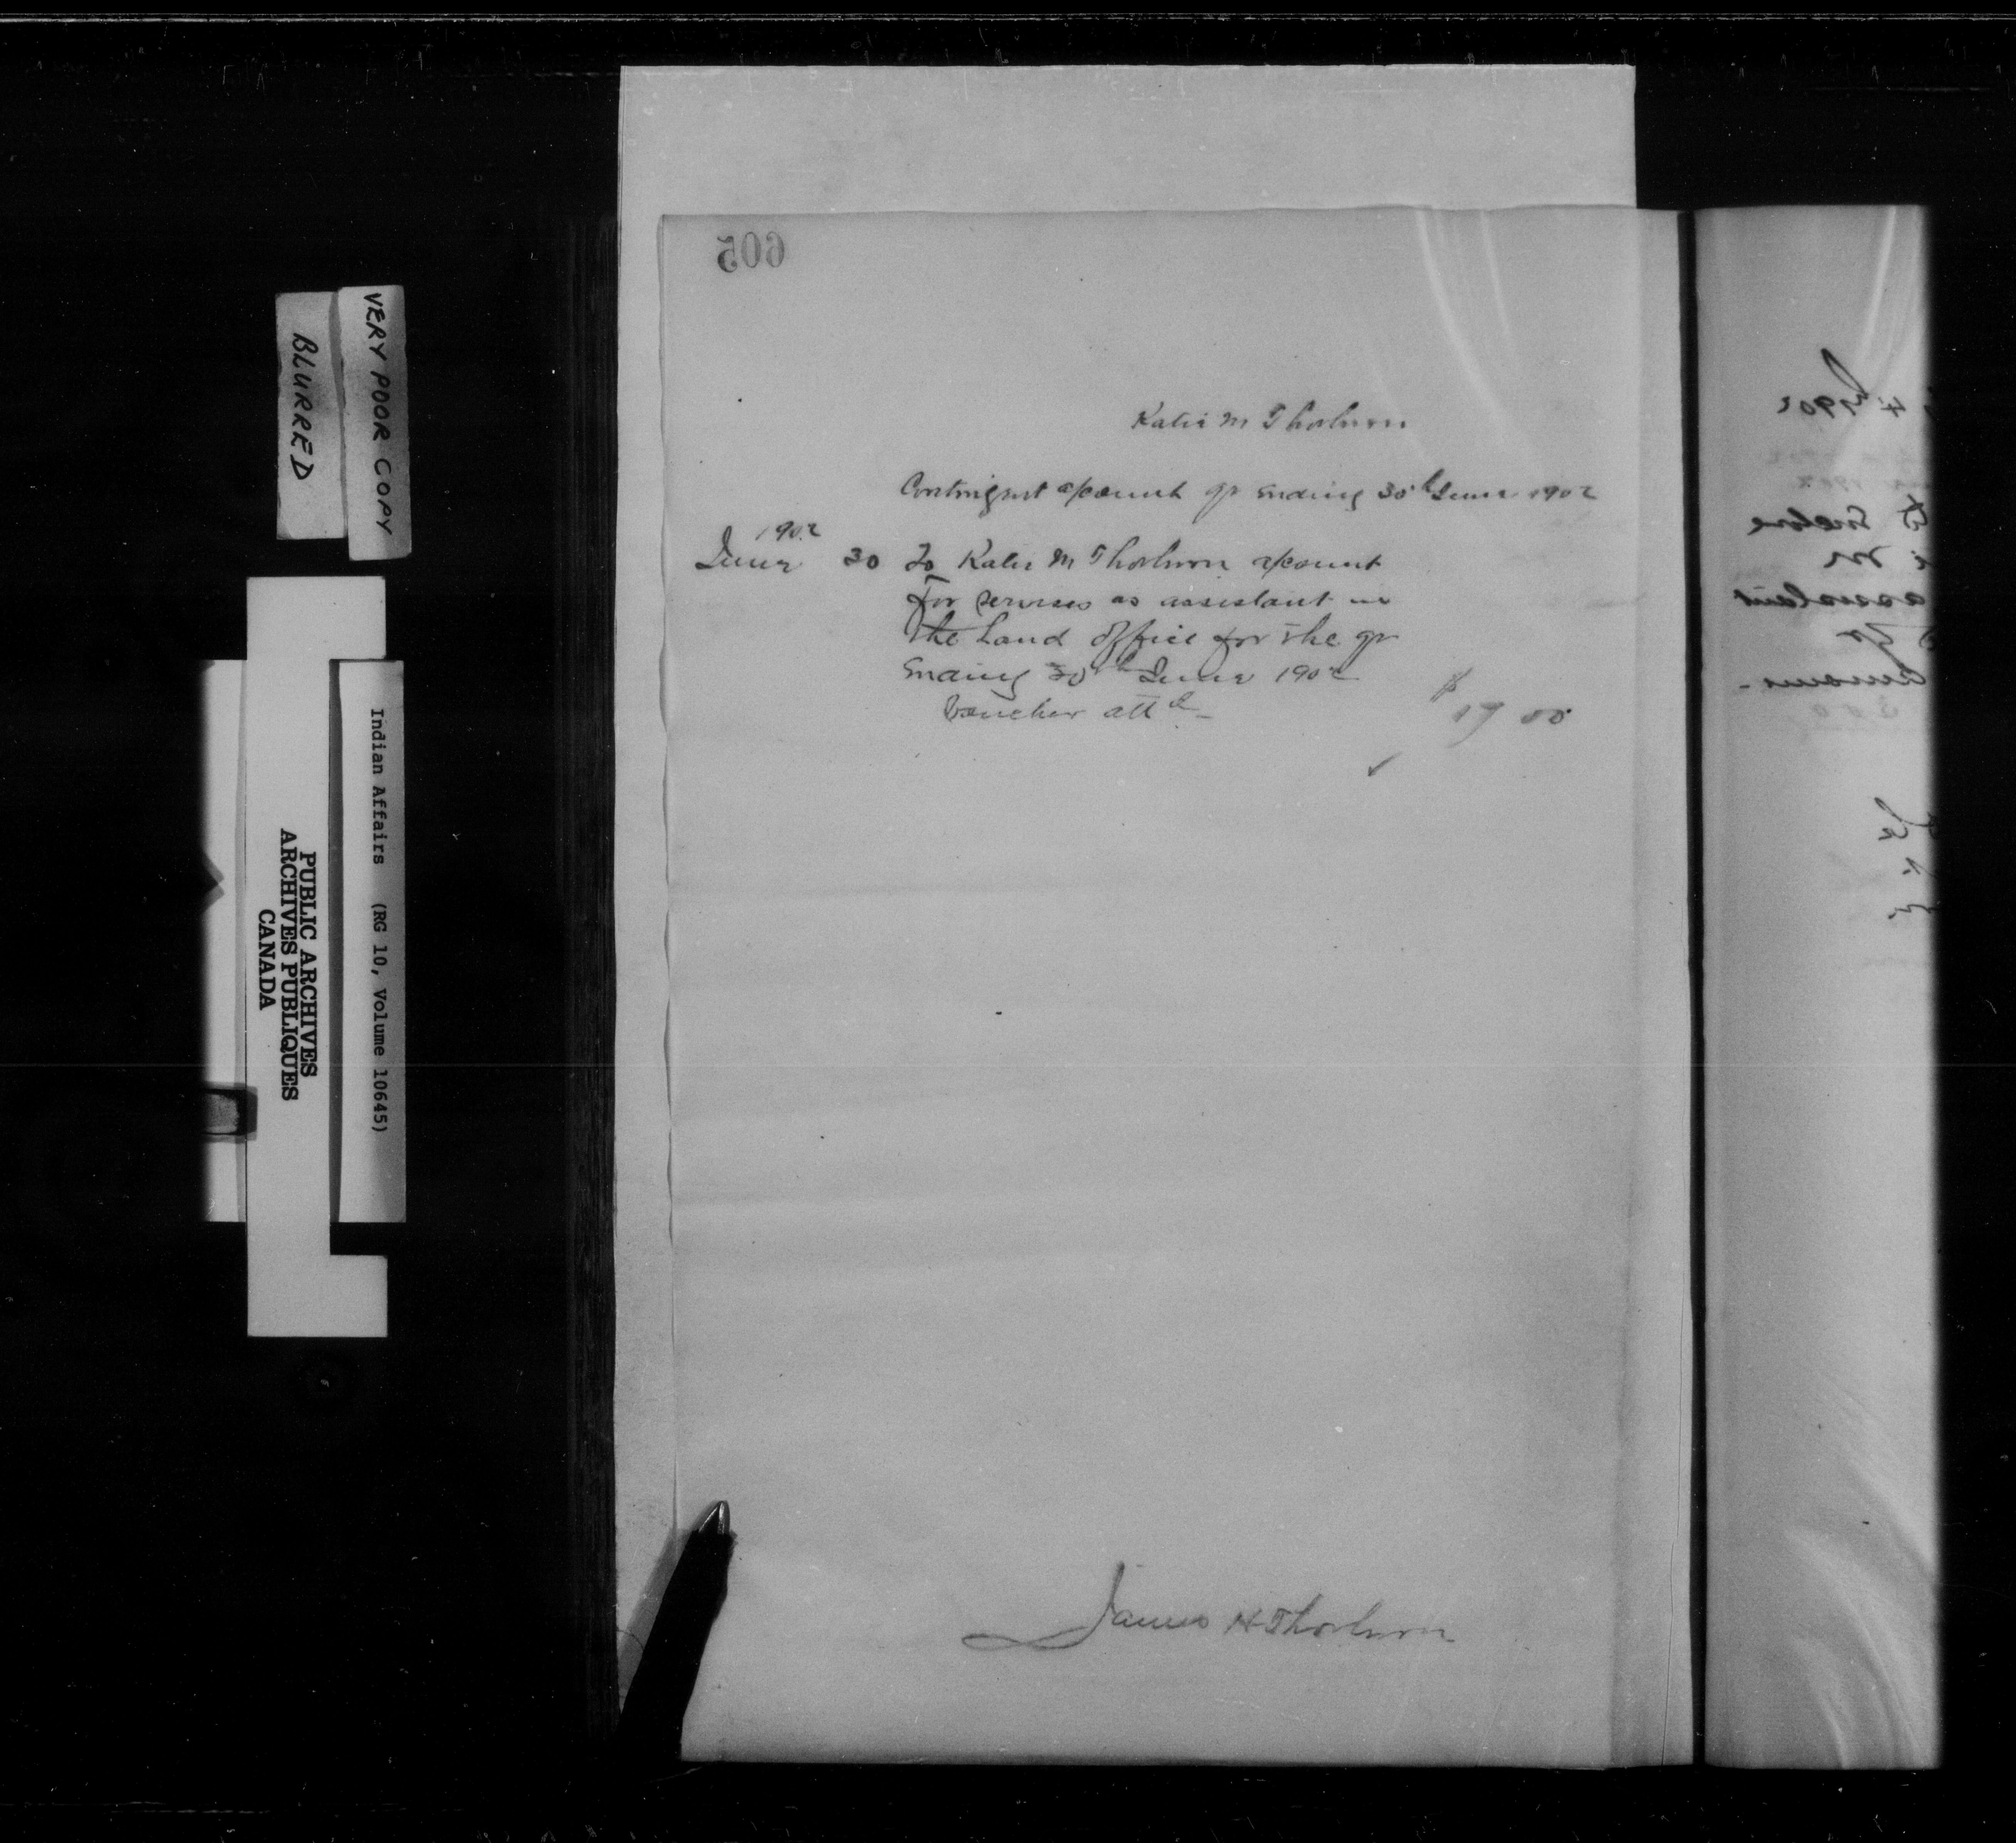 605
Katie M Thorburn
Contingent a/count qr Ending 30th June 1902
1902
June 30 To Katie M Thorburn a/count
for services as assistant in
the Land Office for the qr
Ending 30th June 1902
Voucher attd
$
19 00
James H Thorburn
VERY POOR COPY
BLURRED
Indian Affairs (RG 10, Volume 10645)
PUBLIC ARCHIVES
ARCHIVES PUBLIQUES
CANADA
4 1902
Enclose
M
assistant
qr